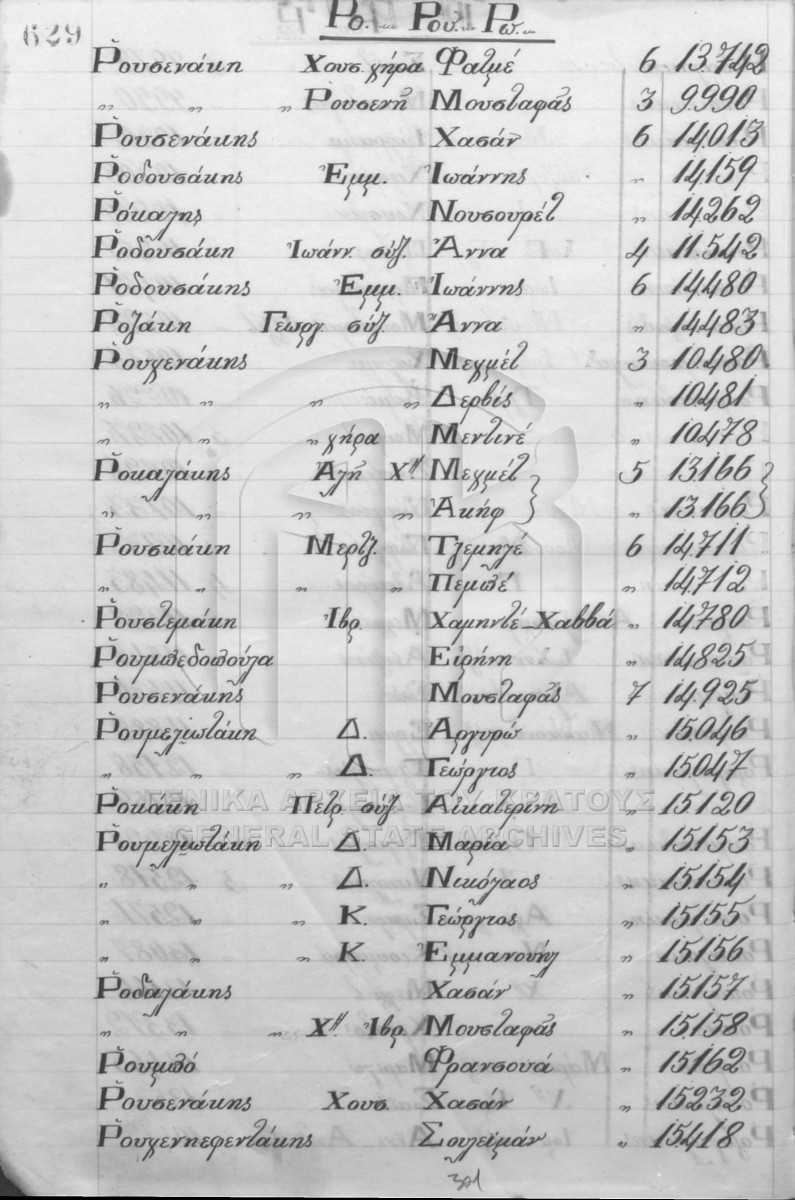 629
Ρο... Ρου... Ρω...
Ῥουσενάκη Χουσ. χήρα Φατμέ 6 13.742
„ „ „ Ῥουσενῆ Μουσταφᾶς 3 9.990
Ῥουσενάκης Χασάν 6 14.013
Ῥοδουσάκης Ἐμμ. Ἰωάννης „ 14.159
Ῥόκαλης Νουσουρέτ „ 14.262
Ῥοδουσάκη Ἰωάνν. σύζ. Ἄννα 4 11.542
Ῥοδουσάκης Ἐμμ. Ἰωάννης 6 14.480
Ῥοζάκη Γεωργ. σύζ. Ἄννα „ 14.483
Ῥουλενάκης Μεχμέτ 3 10.480
„ „ „ „ Δερβίς „ 10.481
„ „ „ χήρα Μεντινέ „ 10.478
Ῥοκαλάκης Ἀλῆ Χ" Μεχμέτ 5 13.166
„ „ „ „ Ἀκήφ „ 13.166
Ῥουσκάκη Μερτζ. Τζεμηλέ 6 14.711
„ „ „ „ Πεμπέ „ 14.712
Ῥουστεμάκη Ἰβρ. Χαμηντέ-Χαββά „ 14.780
Ῥουμπεδοπούλα Εἰρήνη „ 14.825
Ῥουσενάκης Μουσταφᾶς 7 14.925
Ῥουμελιωτάκη Δ. Ἀργυρώ „ 15.046
„ „ „ Δ. Γεώργιος „ 15.047
Ῥοκάκη Πετρ. σύζ. Αἰκατερίνη „ 15.120
Ῥουμελιωτάκη Δ. Μαρία „ 15.153
„ „ „ Δ. Νικόλαος „ 15.154
„ „ „ Κ. Γεώργιος „ 15.155
„ „ „ Κ. Ἐμμανουήλ „ 15.156
Ῥοδαλάκης Χασάν „ 15.157
„ „ „ Χ" Ἰβρ. Μουσταφᾶς „ 15.158
Ῥουμπό Φρανσουά „ 15.162
Ῥουσενάκης Χουσ. Χασάν „ 15.232
Ῥουλενηεφεντάκης Σουλεϊμάν „ 15.418
ΓΕΝΙΚΑ ΑΡΧΕΙΑ ΤΟΥ ΚΡΑΤΟΥΣ
GENERAL STATE ARCHIVES